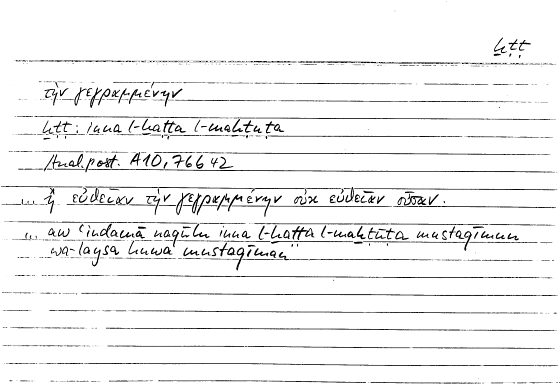 ḫṭṭ
τὴν γεγραμμένην
ḫṭṭ : inna l-ḫaṭṭa l-maḫṭūṭa
Anal. post. A10, 76b42
... ἢ εὐθεῖαν τὴν γεγραμμένην οὐκ εὐθεῖαν οὖσαν.
... aw ʿindamā naqūlu inna l-ḫaṭṭa l-maḫṭūṭa mustaqīmun
wa-laysa huwa mustaqīman